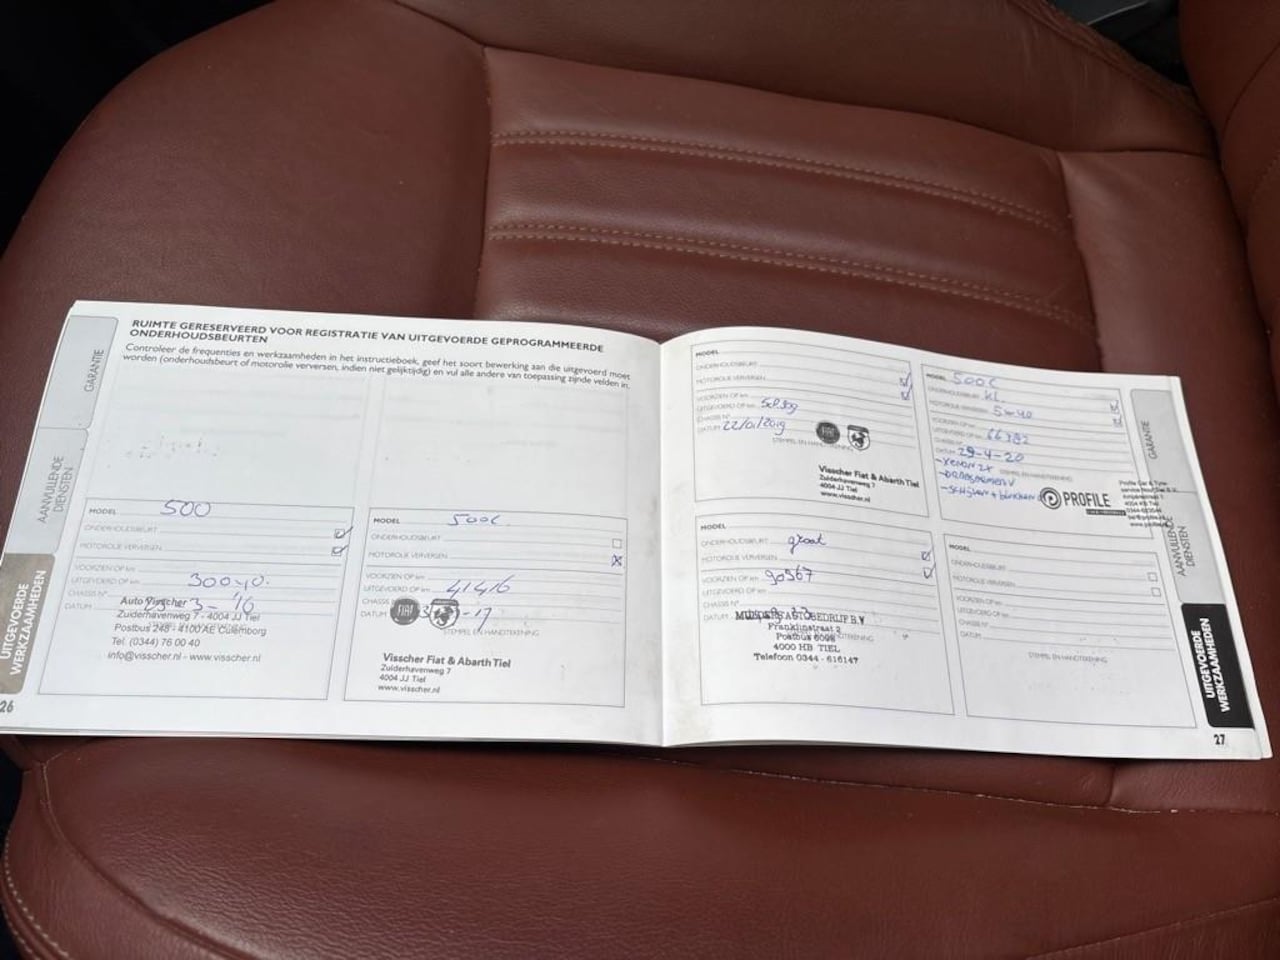 RUIMTE GERESERVEERD VOOR REGISTRATIE VAN UITGEVOERDE GEPROGRAMMEERDE
ONDERHOUDSBEURTEN
Controleer de frequenties en werkzaamheden in het instructieboek, geef het soort bewerking aan die uitgevoerd moet
worden (onderhoudsbeurt of motorolie verversen, indien niet gelijktijdig) en vul alle andere van toepassing zijnde velden in.
GARANTIE
AANVULLENDE
DIENSTEN
UITGEVOERDE
WERKZAAMHEDEN
26
MODEL 500
ONDERHOUDSBEURT
MOTOROLIE VERVERSEN
VOORZIEN OP km
UITGEVOERD OP km 30040
CHASSIS N°
DATUM 3-'16
Auto Visscher
Zuiderhavenweg 7 - 4004 JJ Tiel
Postbus 248 - 4100 AE Culemborg
Tel. (0344) 76 00 40
info@visscher.nl - www.visscher.nl
MODEL 500C
ONDERHOUDSBEURT
MOTOROLIE VERVERSEN
VOORZIEN OP km
UITGEVOERD OP km 41416
CHASSIS
DATUM
FIAT
STEMPEL EN HANDTEKENING
Visscher Fiat & Abarth Tiel
Zuiderhavenweg 7
4004 JJ Tiel
www.visscher.nl
MODEL
ONDERHOUDSBEURT
MOTOROLIE VERVERSEN
VOORZIEN OP km
UITGEVOERD OP km
CHASSIS N°
DATUM 22/01/2019
FIAT
STEMPEL EN HANDTEKENING
Visscher Fiat & Abarth Tiel
Zuiderhavenweg 7
4004 JJ Tiel
www.visscher.nl
MODEL 500C
ONDERHOUDSBEURT KL.
MOTOROLIE VERVERSEN 5-40
VOORZIEN OP km
UITGEVOERD OP km 66382
CHASSIS N°
DATUM 29-4-20
STEMPEL EN HANDTEKENING
PROFILE
Profile Car & Tyre-
MODEL
ONDERHOUDSBEURT groot
MOTOROLIE VERVERSEN
VOORZIEN OP km 90367
UITGEVOERD OP km
CHASSIS N°
DATUM
Franklinstraat 2
Postbus 6098
4000 HB TIEL
Telefoon 0344 - 616147
MODEL
ONDERHOUDSBEURT
MOTOROLIE VERVERSEN
VOORZIEN OP km
UITGEVOERD OP km
CHASSIS N°
DATUM
STEMPEL EN HANDTEKENING
GARANTIE
AANVULLENDE
DIENSTEN
UITGEVOERDE
WERKZAAMHEDEN
27